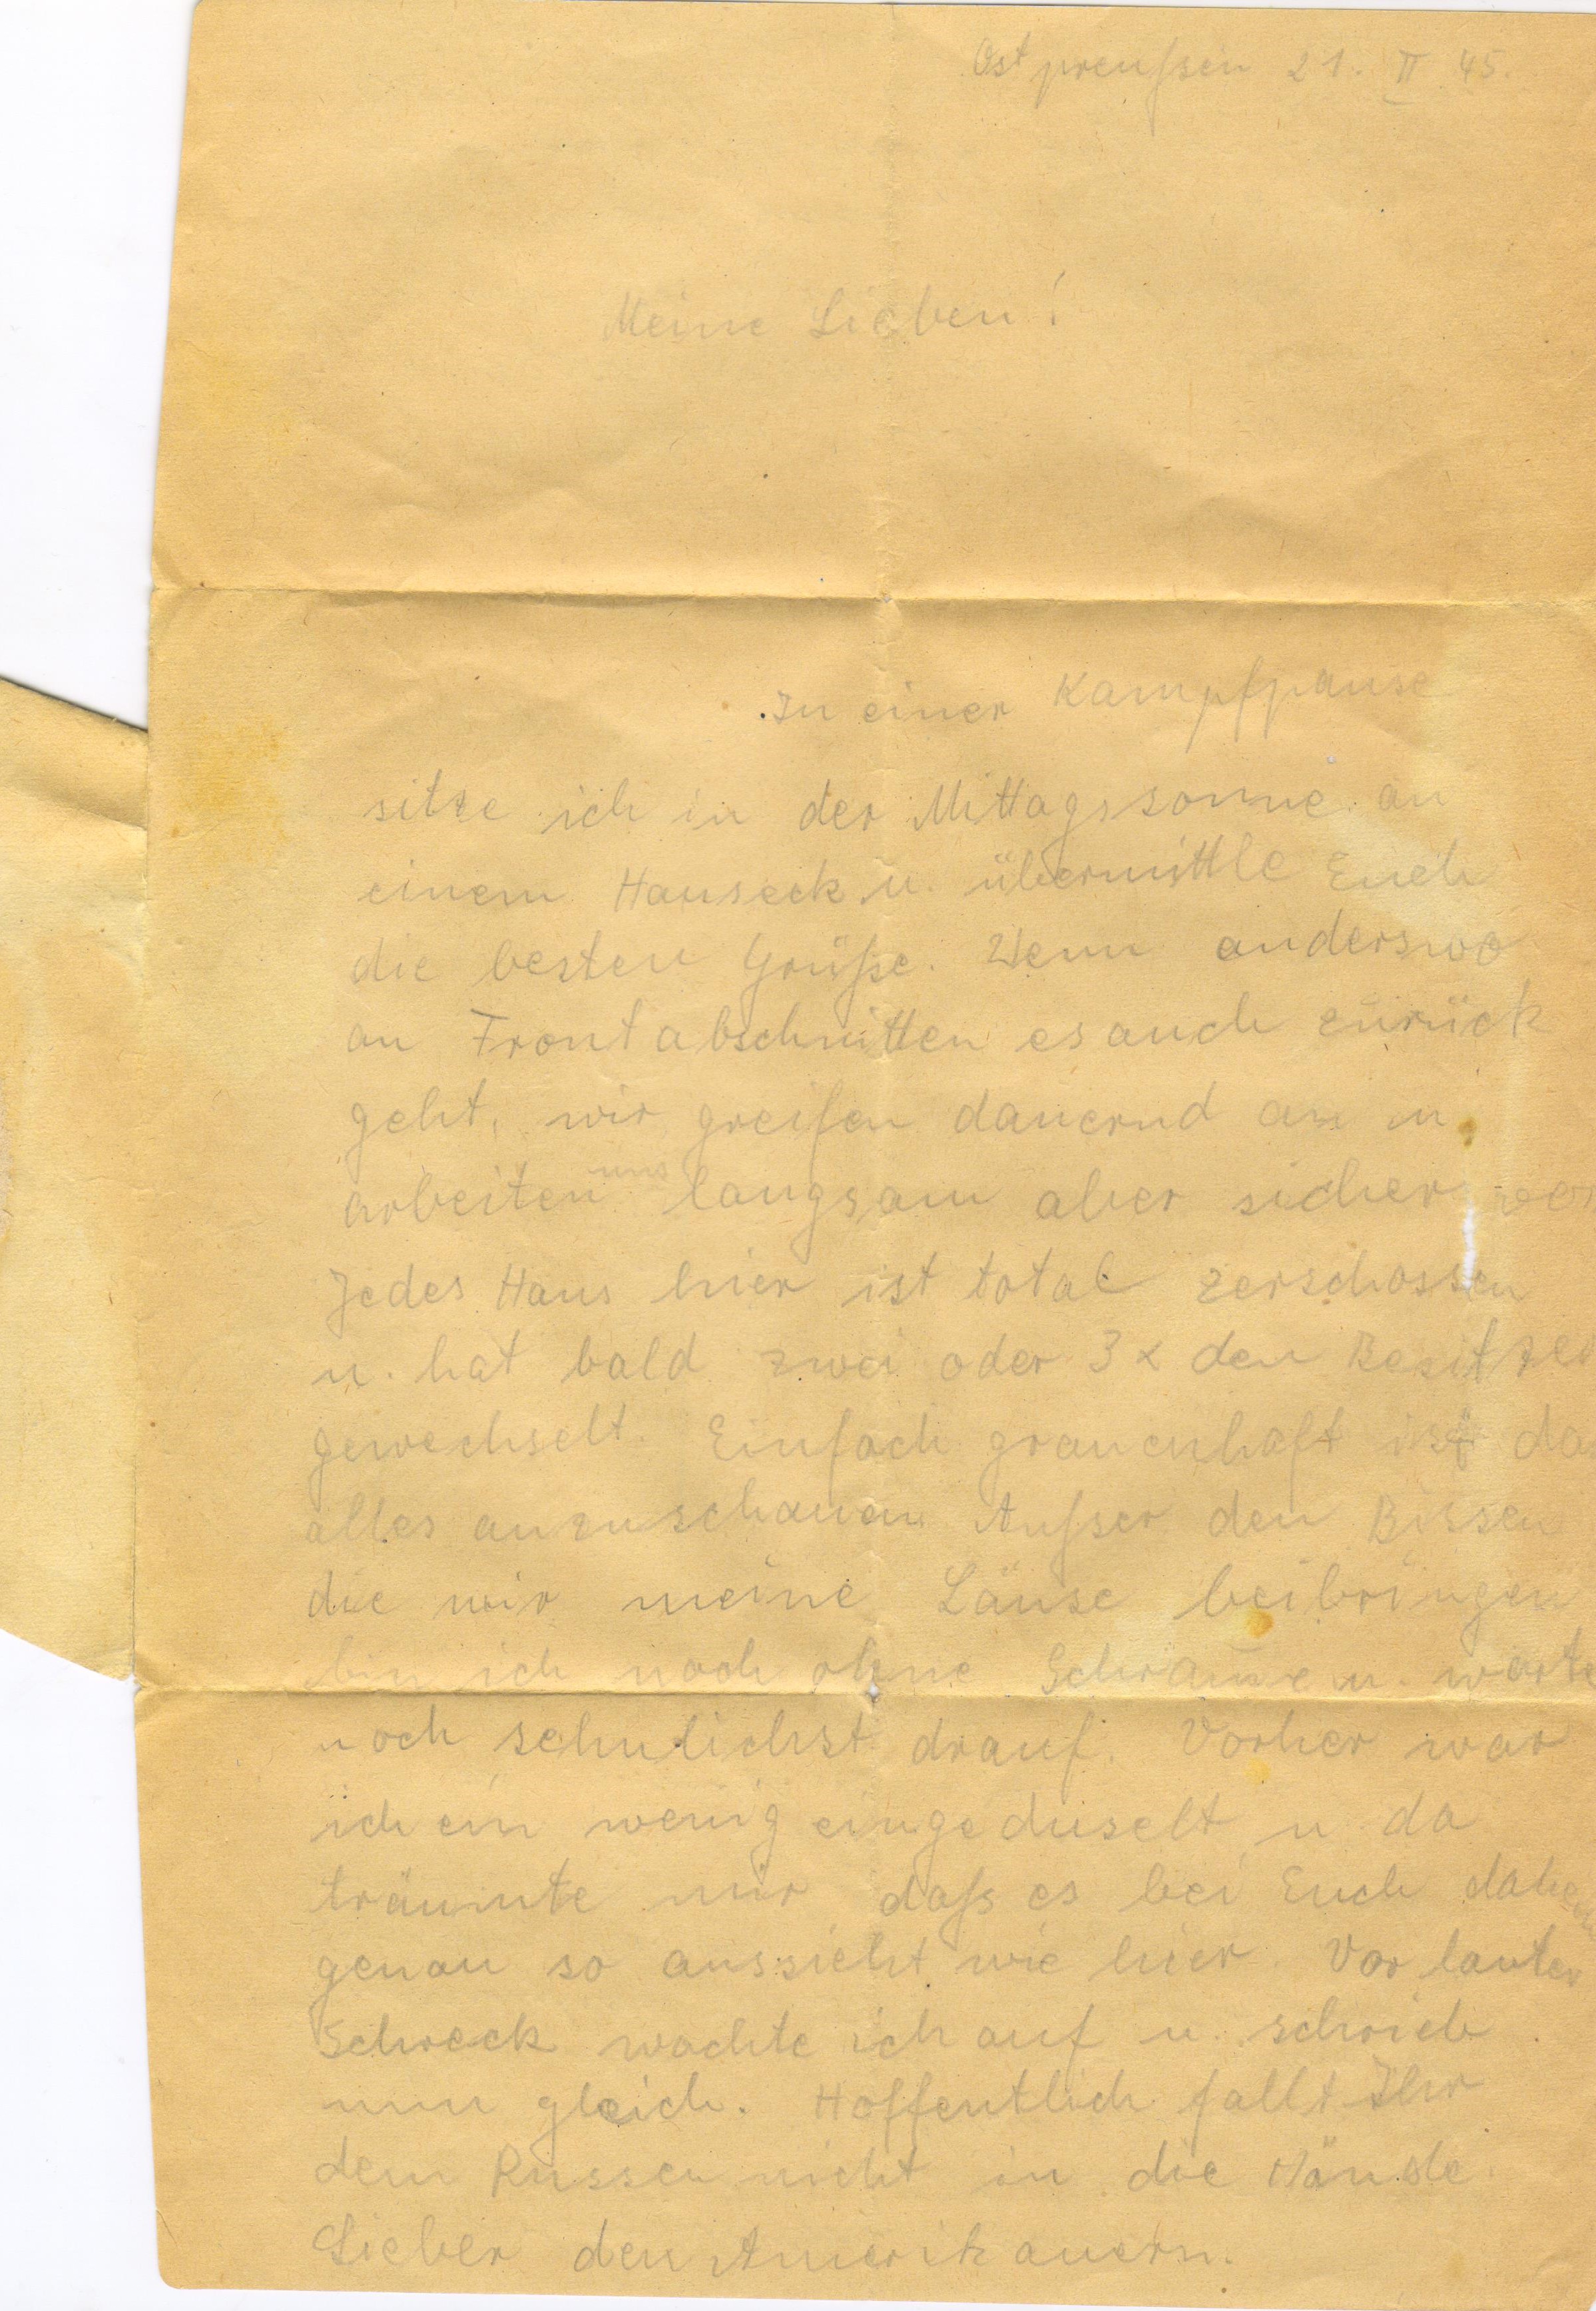 Ostpreußen 21. II 45.
Meine Lieben!
In einer Kampfpause
sitze ich in der Mittagssonne an
einem Hauseck u. übermittle Euch
die besten Grüße. Wenn anderswo
an Frontabschnitten es auch zurück
geht, wir greifen dauernd an u.
arbeiten uns langsam aber sicher vor
Jedes Haus hier ist total zerschossen
u. hat bald zwei oder 3x den Besitzer
gewechselt. Einfach grauenhaft ist da
alles anzuschauen Außer den Bissen
die mir meine Läuse beibringen
bin ich noch ohne Schramme u. warte
noch sehnlichst drauf. Vorher war
ich ein wenig eingeduselt u. da
träumte mir daß es bei Euch daheim
genau so aussieht wie hier. Vor lauter
Schreck wachte ich auf u. schrieb
nun gleich. Hoffentlich fallt Ihr
dem Russen nicht in die Hände.
Lieber den Amerikanern.